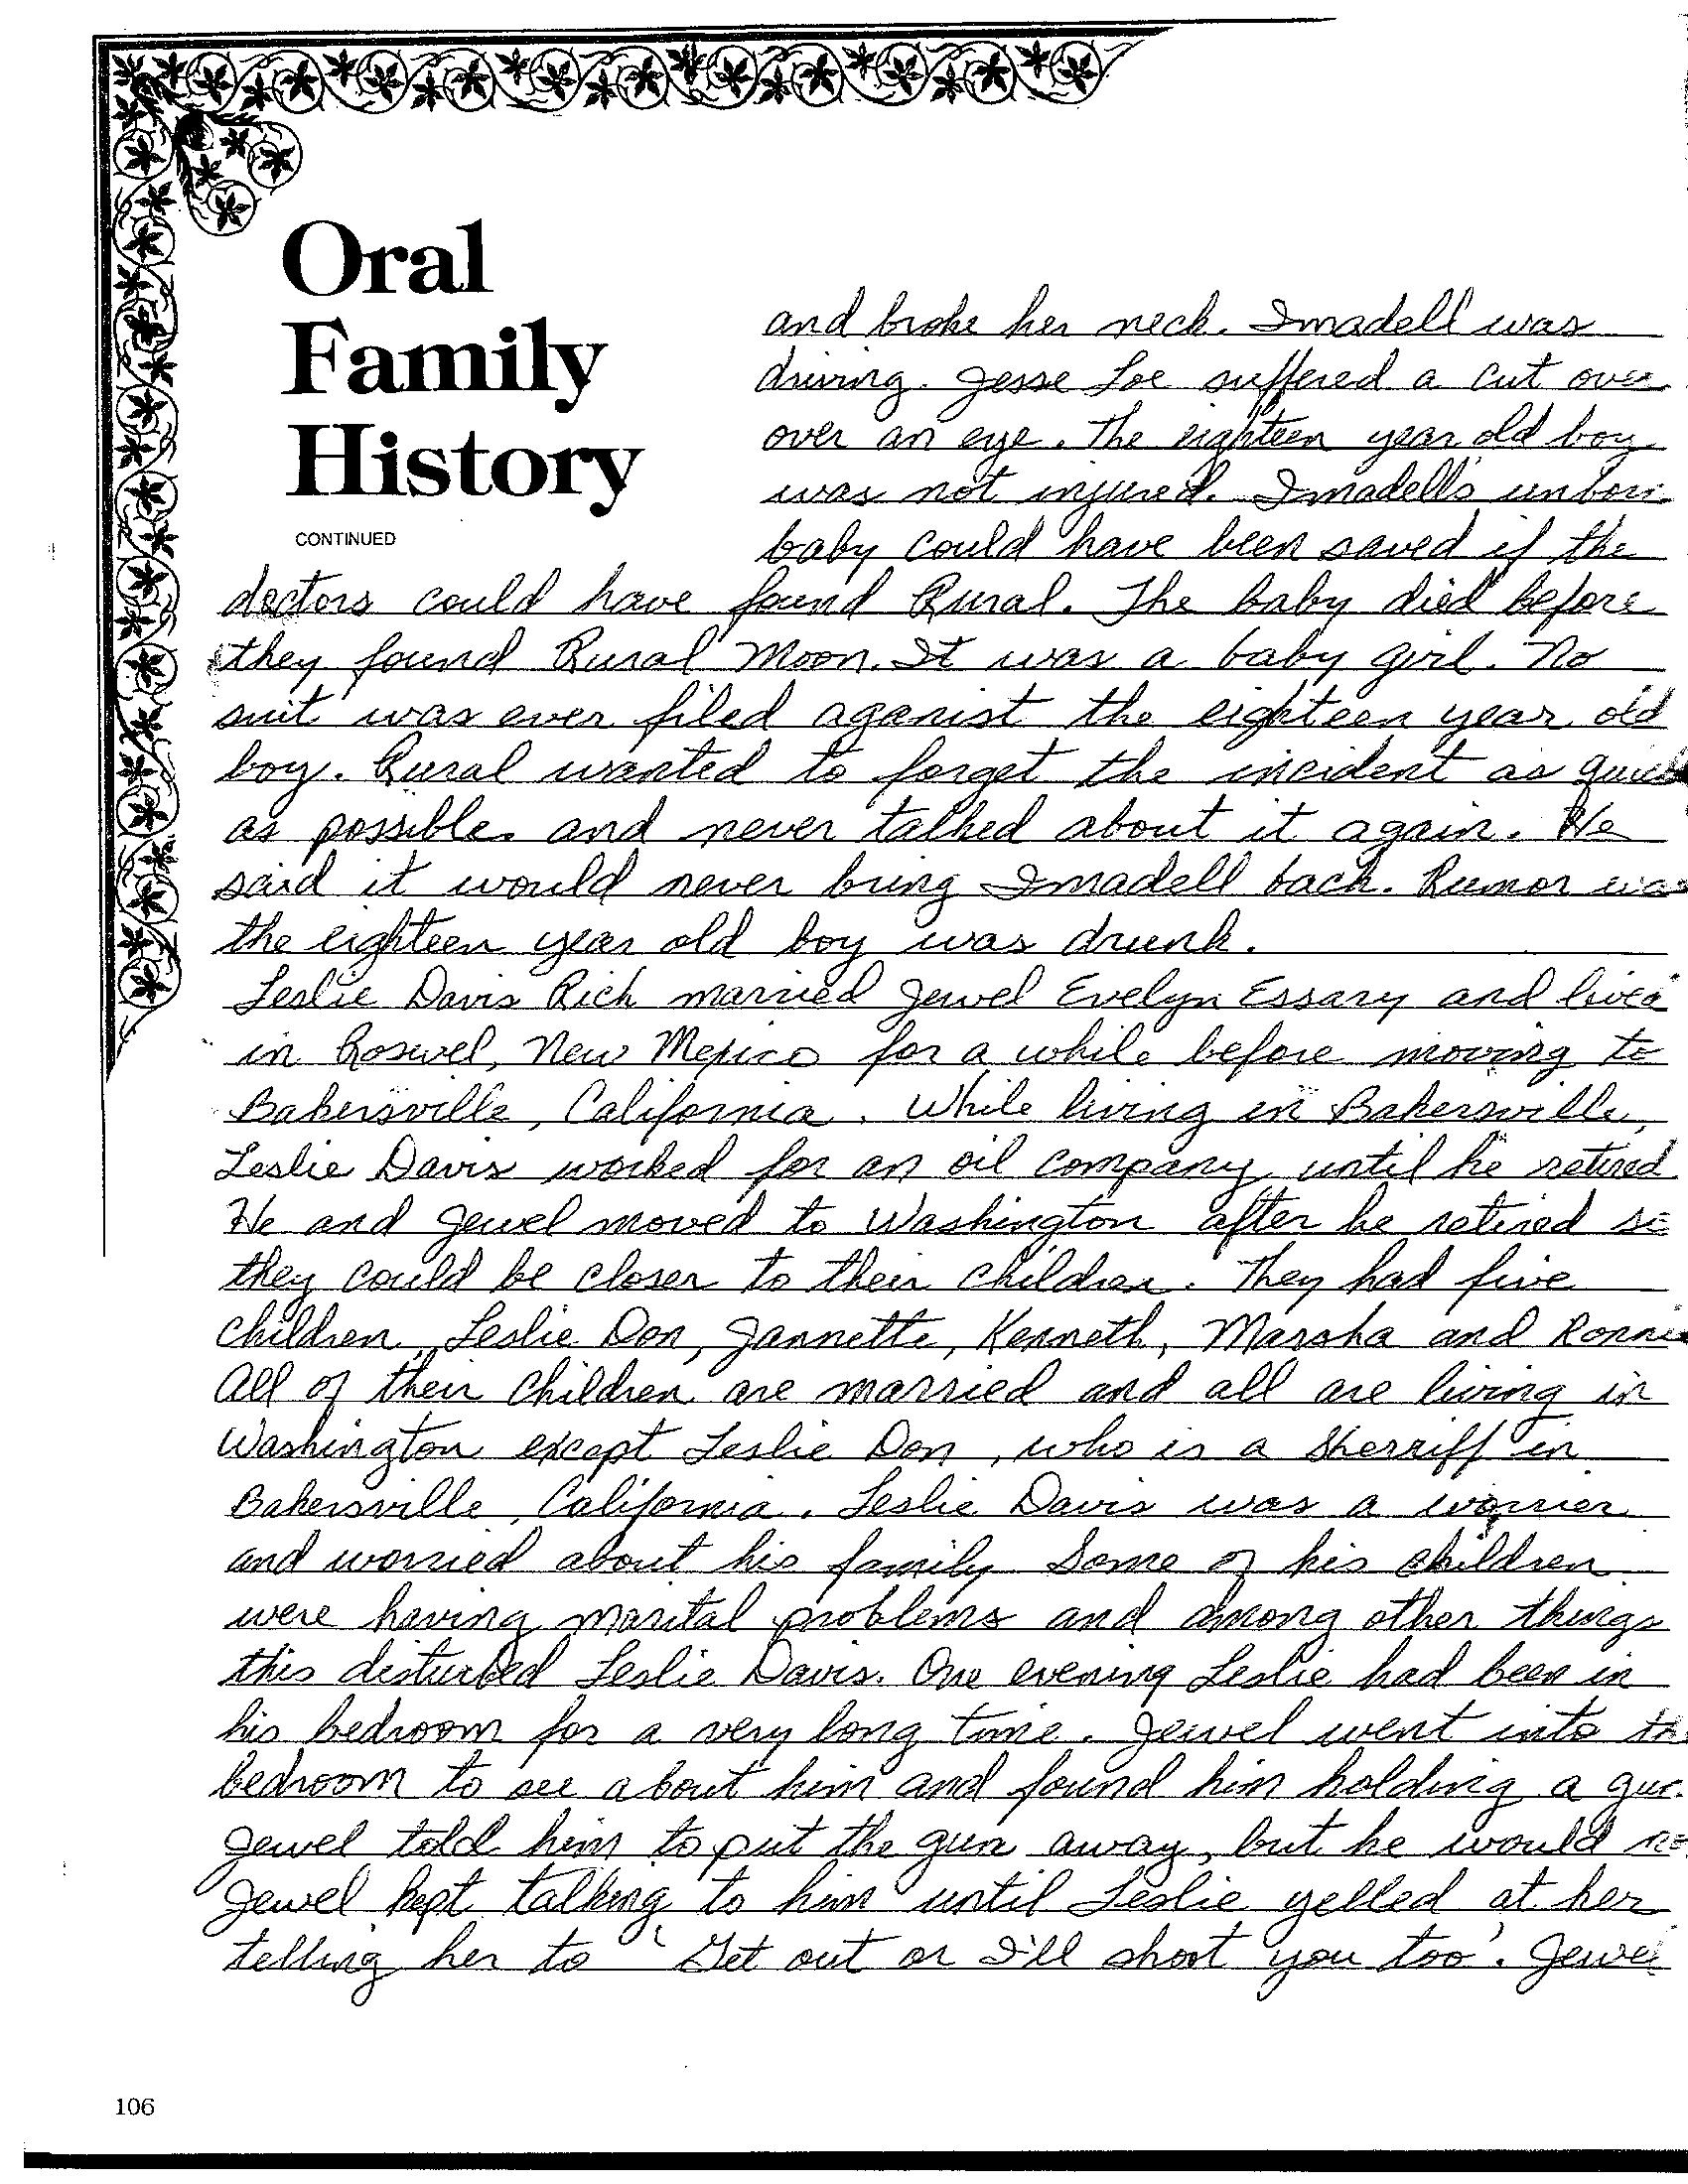 Oral
Family
History
CONTINUED
and broke her neck. Imadell was
driving. Jesse Loe suffered a cut over
over an eye. The eighteen year old boy
was not injured. Imadell's unborn
baby could have been saved if the
doctors could have found Rural. The baby died before
they found Rural Moon. It was a baby girl. No
suit was ever filed aganist the eighteen year old
boy. Rural wanted to forget the incident as quick
as possible and never talked about it again. He
said it would never bring Imadell back. Rumor was
the eighteen year old boy was drunk.
Leslie Davis Rich married Jewel Evelyn Essary and lived
in Roswel, New Mexico for a while before moving to
Bakersville, California. While living in Bakersville,
Leslie Davis worked for an oil company until he retired.
He and Jewel moved to Washington after he retired so
they could be closer to their children. They had five
children, Leslie Don, Jannette, Kenneth, Marsha and Ronnie
All of their children are married and all are living in
Washington except Leslie Don, who is a Sherriff in
Bakersville, California. Leslie Davis was a worrier
and worried about his family. Some of his children
were having marital problems and among other things
this disturbed Leslie Davis. One evening Leslie had been in
his bedroom for a very long time. Jewel went into the
bedroom to see about him and found him holding a gun.
Jewel told him to put the gun away, but he would no
Jewel kept talking to him until Leslie yelled at her
telling her to 'Get out or I'll shoot you too'. Jewel
106